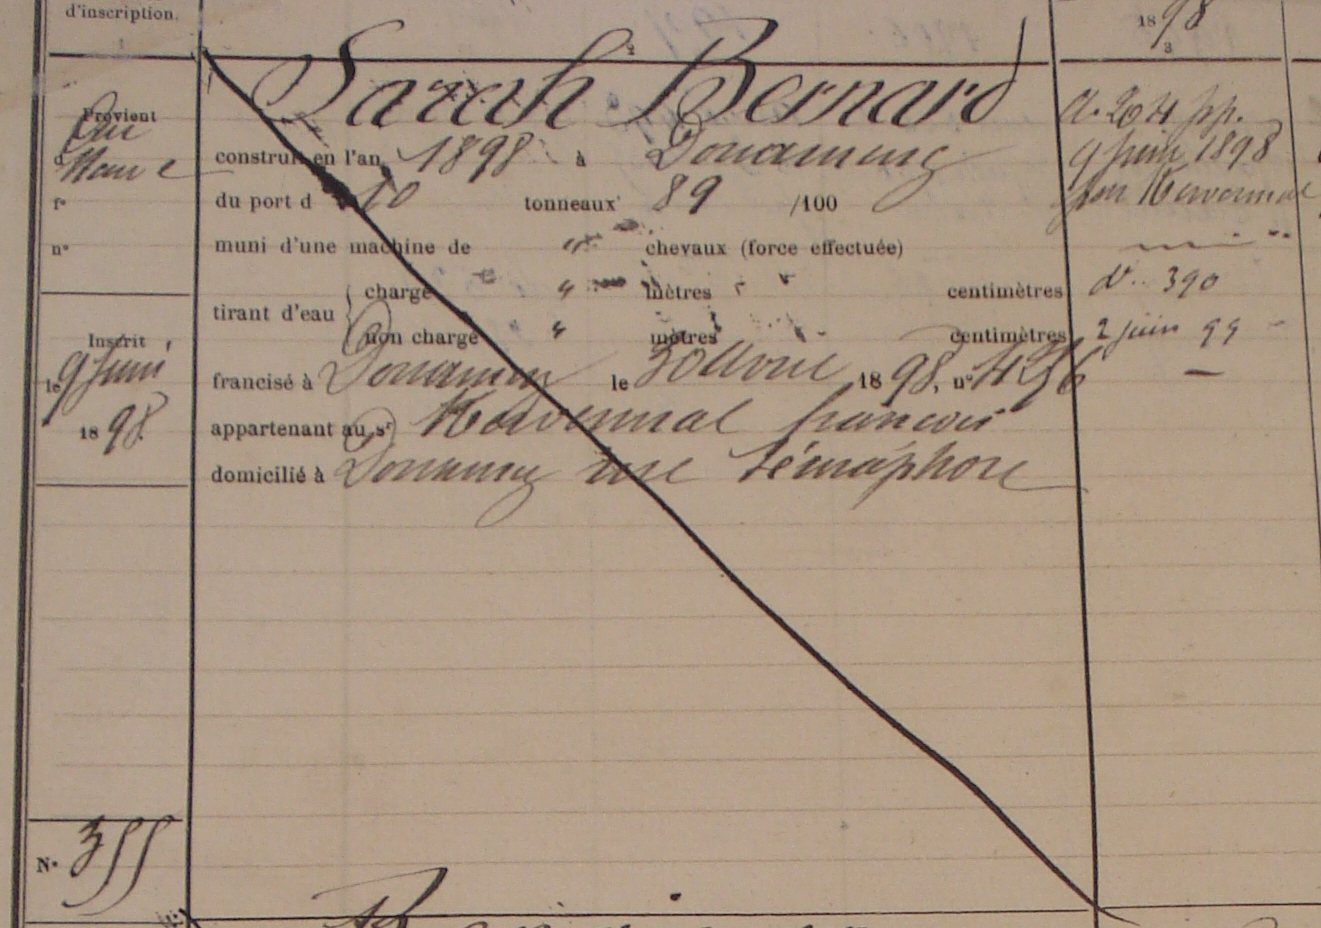 d'inscription.
2
1898
3
Sarah Bernard
Provient
du
Neuf
construit en l'an 1898 à Douarnenez
du port d 10 tonneaux 89 /100
f°
n°
muni d'une machine de " chevaux (force effectuée)
tirant d'eau
chargé " mètres " centimètres
non chargé " mètres centimètres
Inscrit
le 9 Juin
1898
francisé à Douarnenez le 30 Avril 1898, n° 456
appartenant au sr Kervennal François
domicilié à Douarnenez rue Sémaphore
A. 204 pp.
9 Juin 1898
fon Kervennal
D. 390
2 juin 99
N° 355